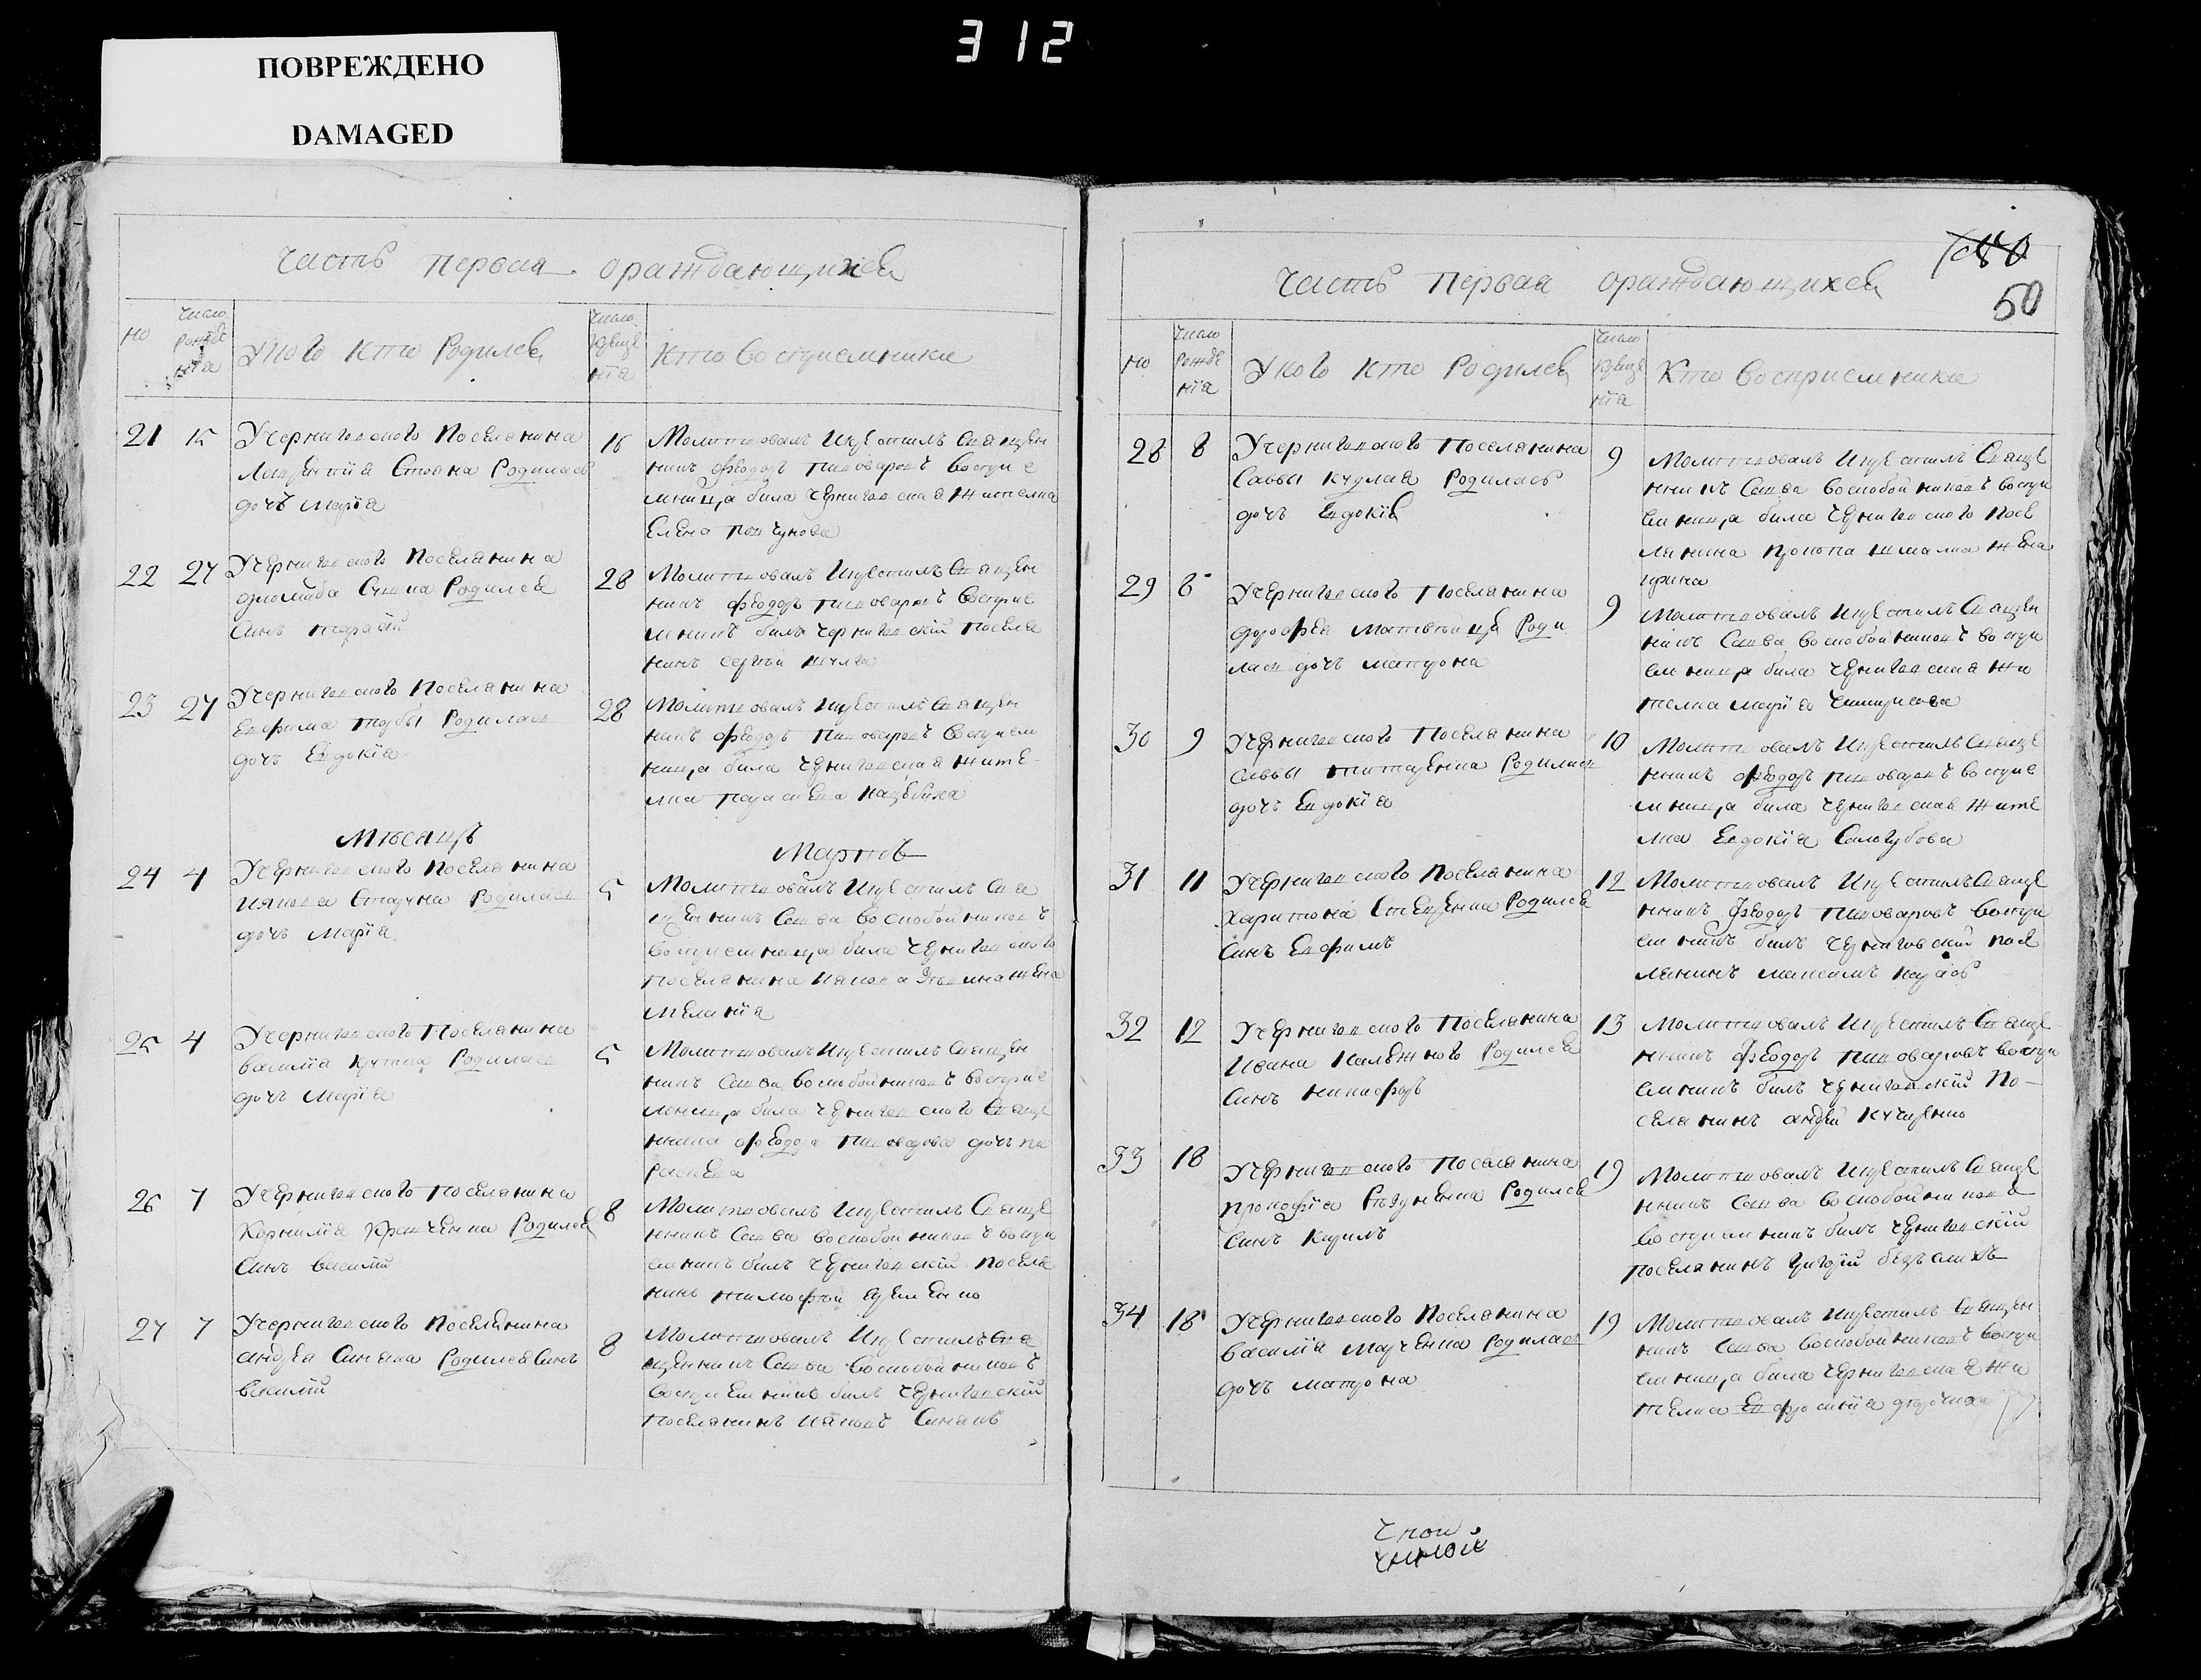 312
ПОВРЕЖДЕНО
DAMAGED
Часть первая ораждающихся
но
число рожде нїя
У кого кто Родился
число креще нїя
Кто восприемники
21 15 У черниговского Поселянина
Родилась
дочь Марїя
16 Молитвовалъ и крестилъ Священ
никъ Феодоръ Пивоваровъ воспрїе
мница била черниговская жителка
Елена
22 27 У черниговского Поселянина
Родился
Синъ тарасїй
28 Молитвовалъ и крестилъ Священ
никъ Феодоръ Пивоваровъ восприе
мникъ билъ черниговскїй поселя
нинъ сергѣй шулга
23 27 У черниговского Поселянина
Евфима Родилась
дочь Евдокїя
28 Молитвовалъ и крестилъ Священ
никъ Феодоръ Пивоваровъ восприем
ница била черниговская жите
лка
Мѣсяцъ Мартъ
24 4 У черниговского Поселянина
Иякова Родилась
дочь Марїя
5 Молитвовалъ и крестилъ Свя
щенникъ Савва Воскобойниковъ
восприемница била черниговского
поселянина Иякова жена
Меланїя
25 4 У черниговского Поселянина
василїя Родилась
дочь Марїя
5 Молитвовалъ и крестилъ Священ
никъ Савва Воскобойниковъ восприе
мница била черниговского Свяще
нника Феодора Пивоварова дочь па
раскева
26 7 У черниговского Поселянина
Корнилїя Родился
Синъ василїй
8 Молитвовалъ и крестилъ Свяще
нникъ Савва Воскобойниковъ воспри
емникъ билъ черниговскїй поселя
нинъ тимофей
27 7 У черниговского Поселянина
андрея Синяка Родился Синъ
василїй
8 Молитвовалъ и крестилъ Свя
щенникъ Савва Воскобойниковъ
восприемникъ билъ черниговскїй
поселянинъ Ияковъ Синякъ
80
50
Часть Первая ораждающихся
но
число рожде нїя
У кого кто Родился
число креще нїя
Кто восприемники
28 8 У черниговского Поселянина
Саввы Родилась
дочь Евдокїя
9 Молитвовалъ и крестилъ Свяще
нникъ Савва Воскобойниковъ воспри
емница била черниговского посе
лянина прокопа жена
ирина
29 8 У черниговского Поселянина
дорофея Роди
лась дочь матрона
9 Молитвовалъ и крестилъ Священ
никъ Савва Воскобойниковъ воспри
емница била черниговская жи
телка марїя
30 9 У черниговского Поселянина
Саввы Родилась
дочь Евдокїя
10 Молитвовалъ и крестилъ Свяще
нникъ Феодоръ Пивоваровъ восприе
мница била черниговская жите
лка Евдокїя Сологубова
31 11 У черниговского Поселянина
харитона Родился
Синъ Евфимъ
12 Молитвовалъ и крестилъ Свяще
нникъ Феодоръ Пивоваровъ воспри
емникъ билъ черниговский посе
лянинъ максимъ
32 12 У черниговского Поселянина
Ивана Калежного Родился
Синъ никифоръ
13 Молитвовалъ и крестилъ Свяще
нникъ Феодоръ Пивоваровъ воспри
емникъ билъ черниговскїй По-
селянинъ андрей
33 18 У черниговского Поселянина
прокофїя Родился
Синъ Кирилъ
19 Молитвовалъ и крестилъ Свяще
нникъ Савва Воскобойников
восприемникъ билъ черниговскїй
поселянинъ
34 18 У черниговского Поселянина
василїя Марченка Родилась
дочь матрона
19 Молитвовалъ и крестилъ Священ
никъ Савва Воскобойниковъ воспри
емница била черниговская жи
телка Евфросинїя